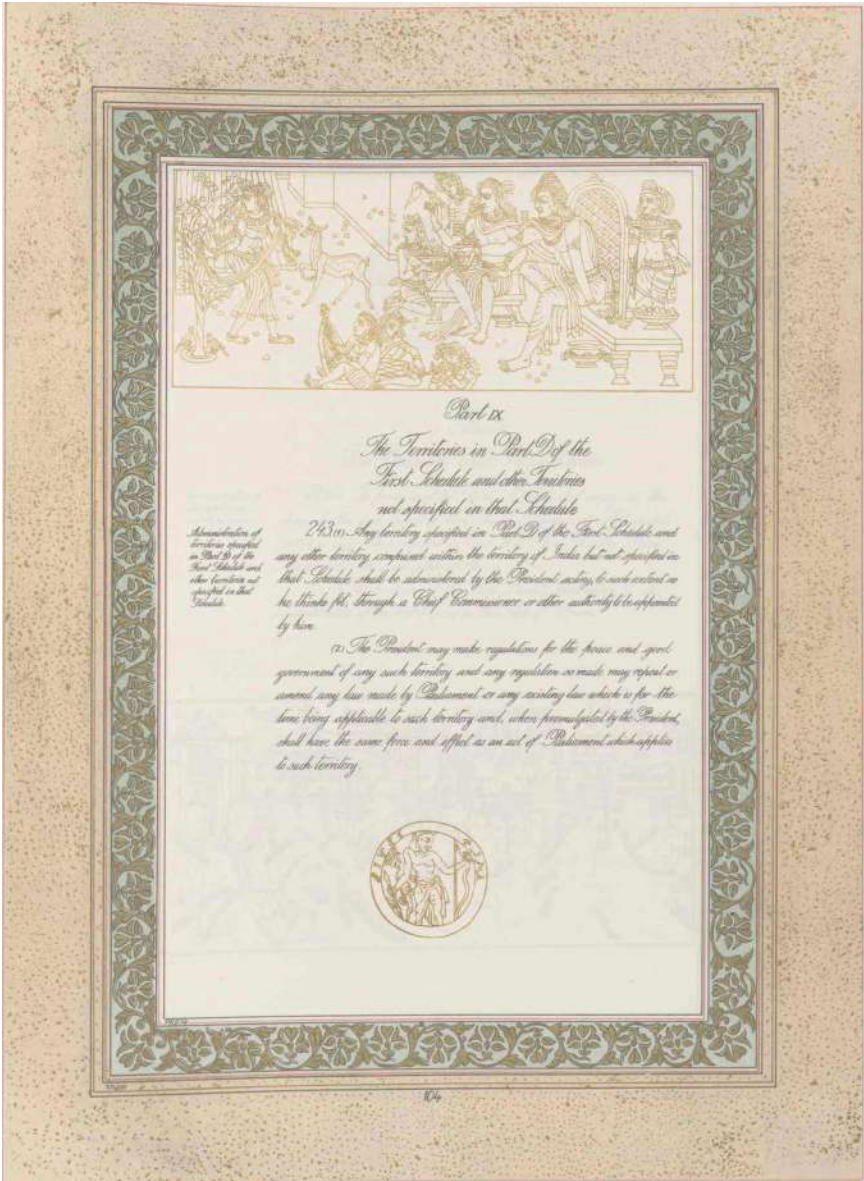 Part IX
The Territories in Part D of the
First Schedule and other Territories
not specified in that Schedule
Administration of
territories specified
in Part D of the
First Schedule and
other territories not
specified in that
Schedule.
243. (1) Any territory specified in Part D of the First Schedule and
any other territory comprised within the territory of India but not specified in
that Schedule shall be administered by the President acting, to such extent as
he thinks fit, through a Chief Commissioner or other authority to be appointed
by him.
(2) The President may make regulations for the peace and good
government of any such territory and any regulation so made may repeal or
amend any law made by Parliament or any existing law which is for the
time being applicable to such territory and, when promulgated by the President,
shall have the same force and effect as an act of Parliament which applies
to such territory.
104